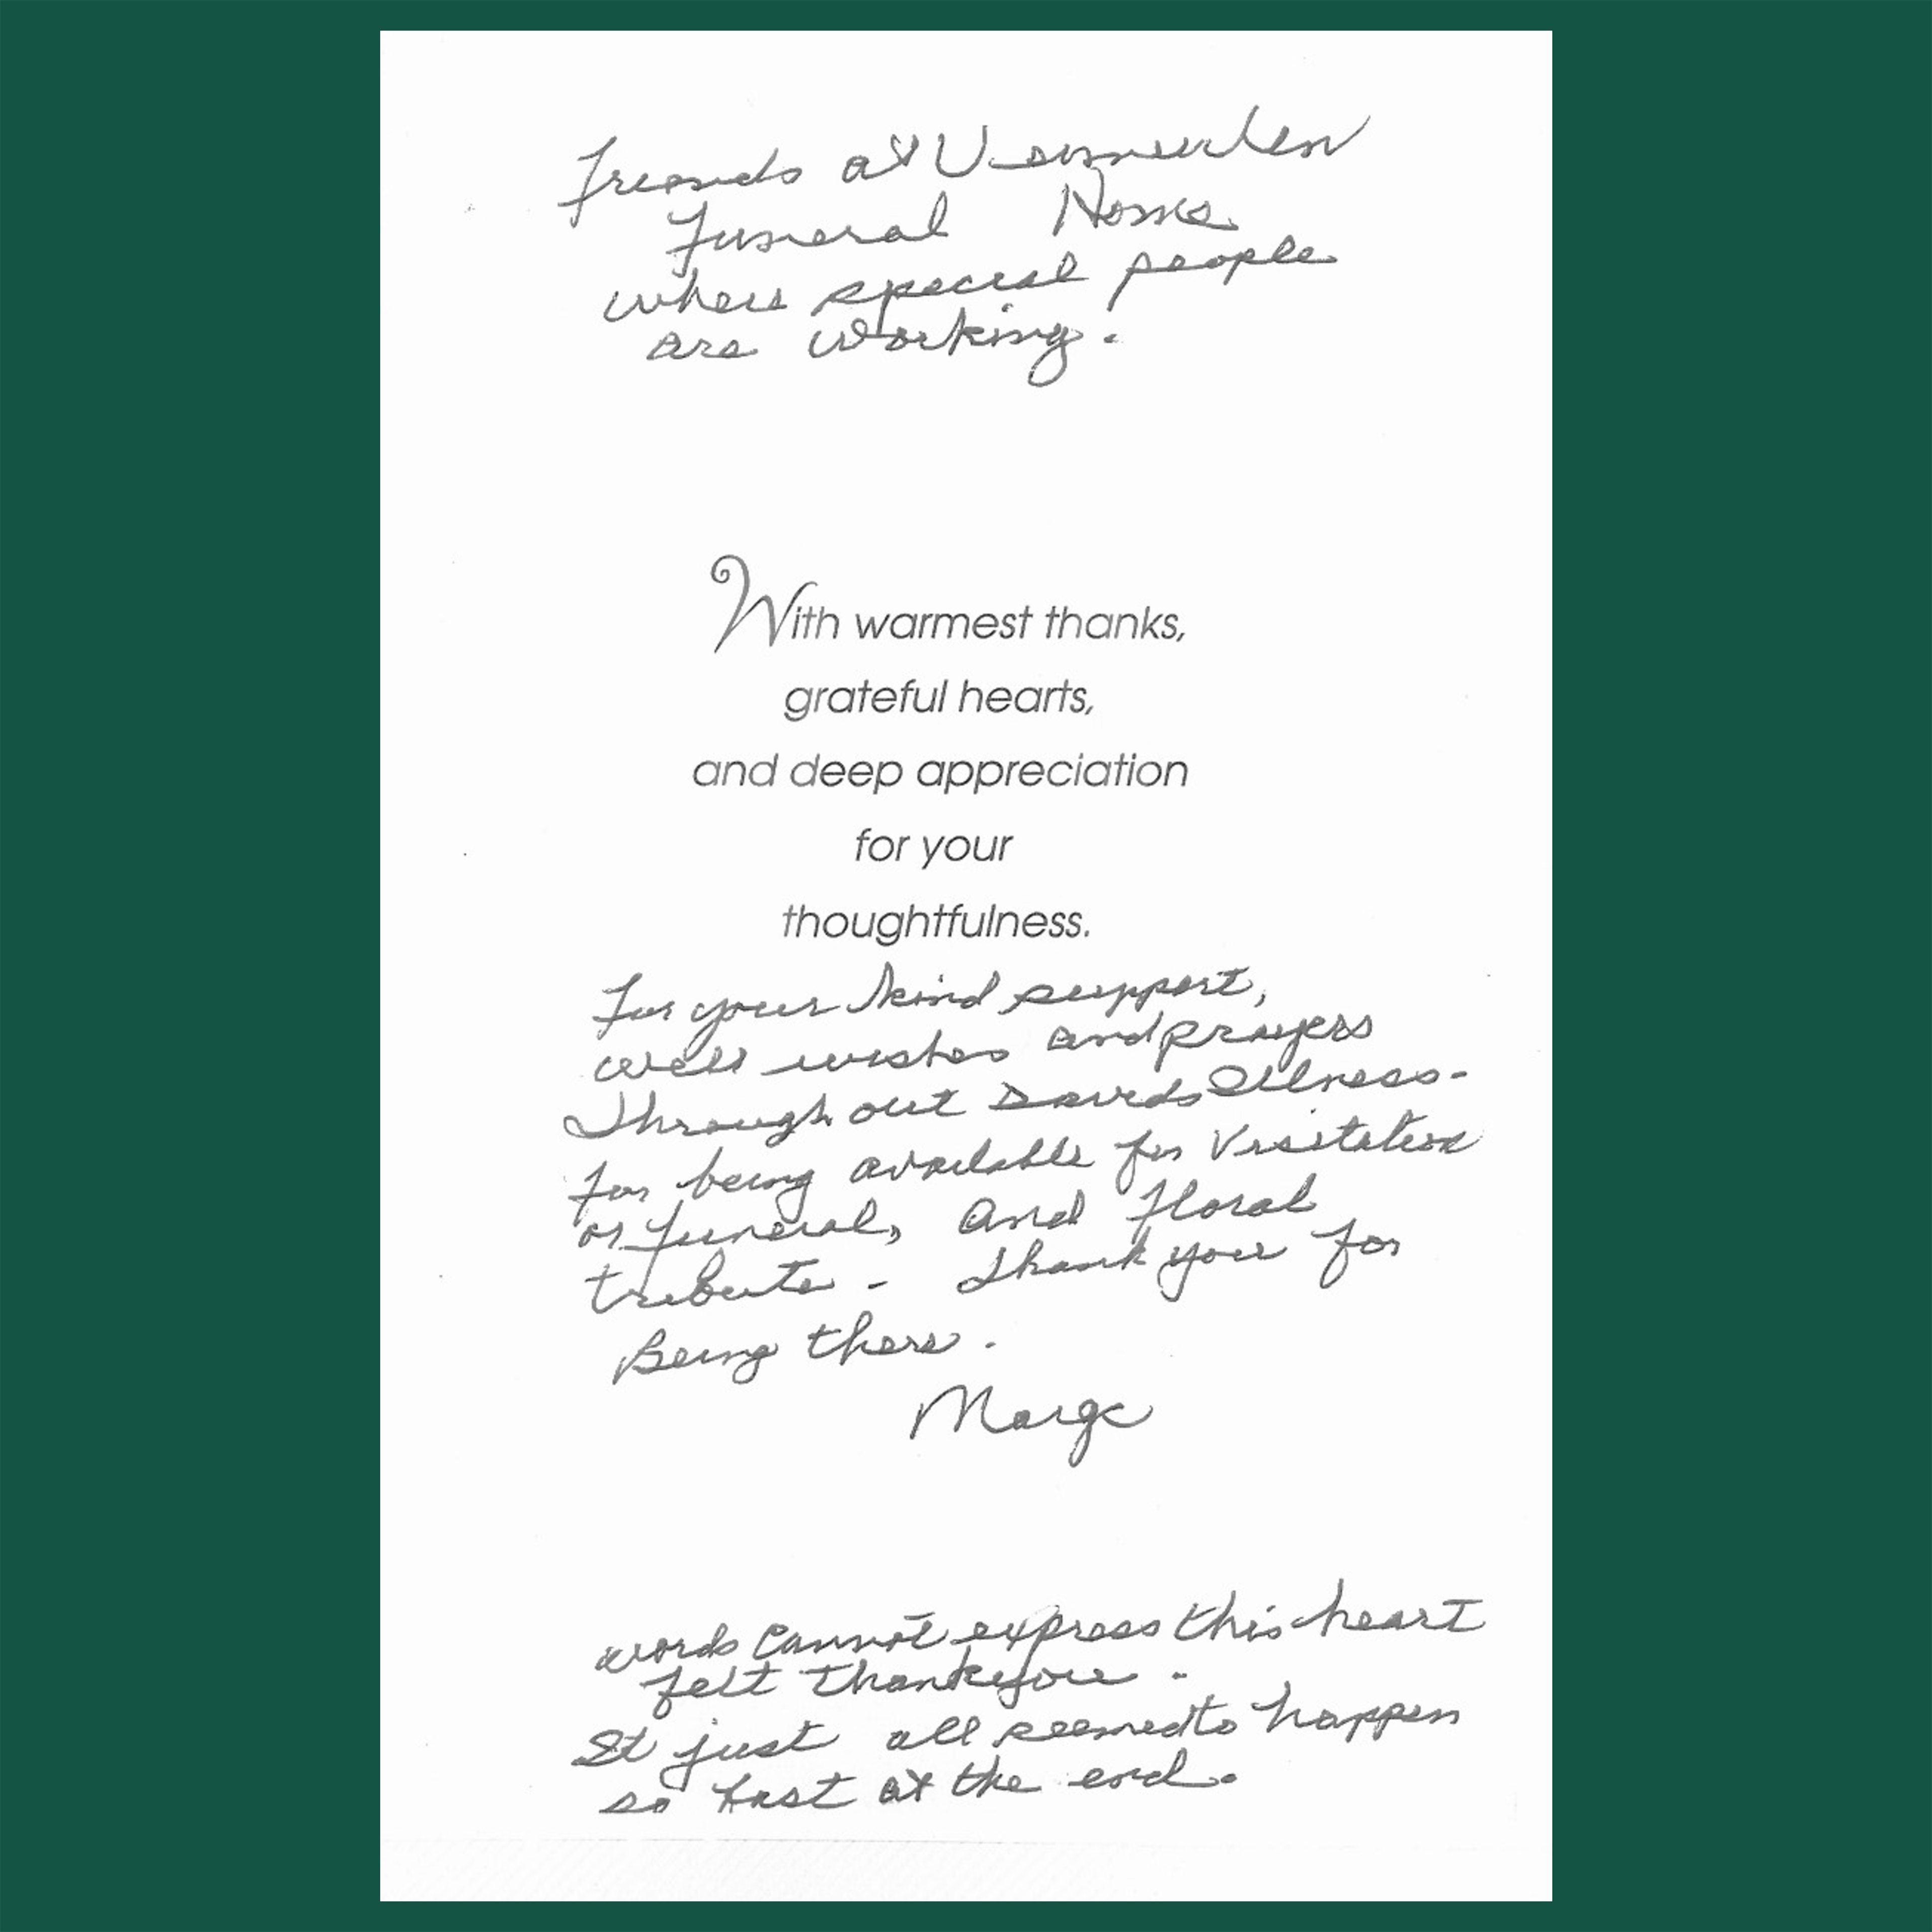 Friends at
Funeral Home
where special people
are working.
With warmest thanks,
grateful hearts,
and deep appreciation
for your
thoughtfulness.
For your kind support,
well wishes and prayers
Through out Davids Illness -
for being available for Visitation
or funeral, and floral
tribute - Thank you for
Being there.
Marge
words cannot express this heart
felt thank you.
It just all seemed to happen
so fast at the end.